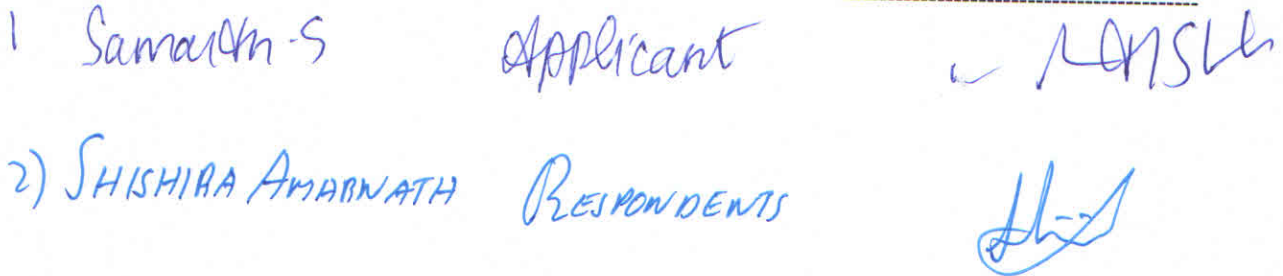 1 Samarth-S Applicant
2) SHISHIRA AMARNATH RESPONDENTS